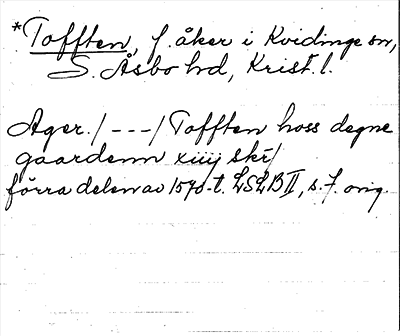 *Tofften, f. åker i Kvidinge sn,
S. Åsbo hd, Krist. l.
Ager. / - - - / Tofften hoss degne
gaardenn xiiij skr/
förra delen av 1570-t. LSLB II, s. 7. orig.